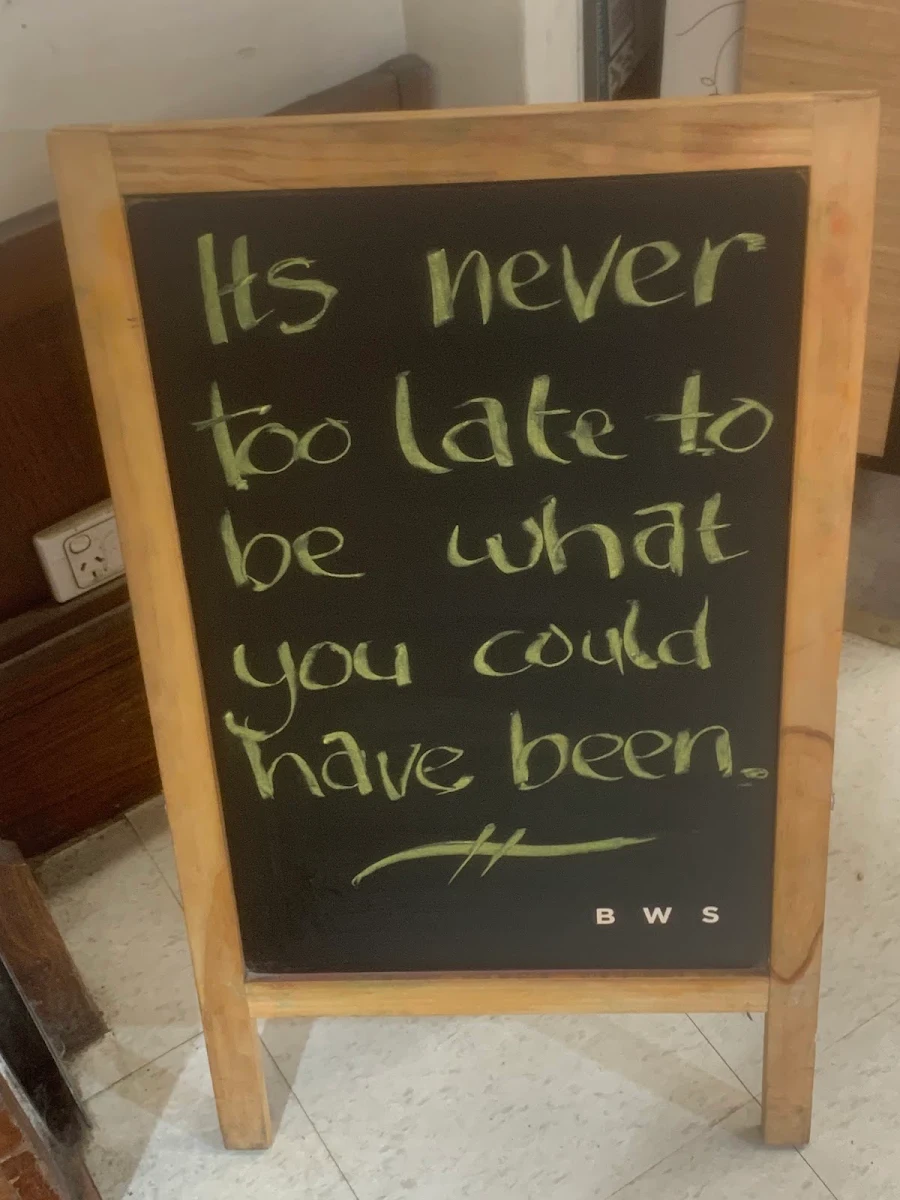 Its never
too late to
be what
you could
have been.
BWS